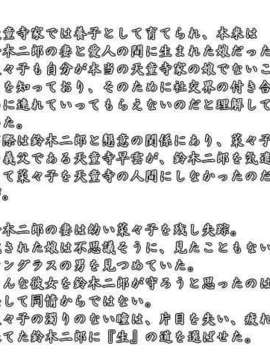 童寺家では養子として育てられ、本来は
木二郎の妻と愛人の間に生まれた娘だった
々子も自分が本当の天童寺家の娘でないこ
を知っており、そのために社交界の付き合
に連れていってもらえないのだと理解して
た。
際は鈴木二郎と懇意の関係にあり、菜々子
義父である天童寺早雲が、鈴木二郎を気遣
て菜々子を天童寺の人間にしなかったのだ
木二郎の妻は幼い菜々子を残し失踪。
された娘は不思議そうに、見たこともない
ングラスの男を見つめていた。
んな彼女を鈴木二郎が守ろうと思ったのは
して同情からではない。
々子の濁りのない瞳は、片目を失い、疲れ
てた鈴木二郎に『生』の道を選ばせた。